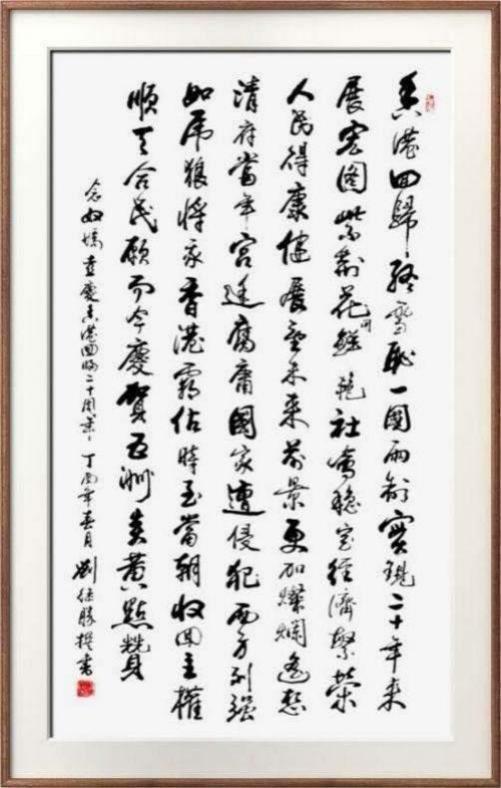 香港回歸終雪恥一國兩制實現二十年來
展宏圖紫荊花開鮮艷社會穩定經濟繁榮
人民得康健展望未來前景更加燦爛遙想
清府當年宮廷腐庸國家遭侵犯西方列強
如虎狼將我香港霸佔時至當朝收回主權
順天合民願而今慶賀五洲炎黃點贊
念奴嬌喜慶香港回歸二十周年丁酉年春月劉德勝撰書